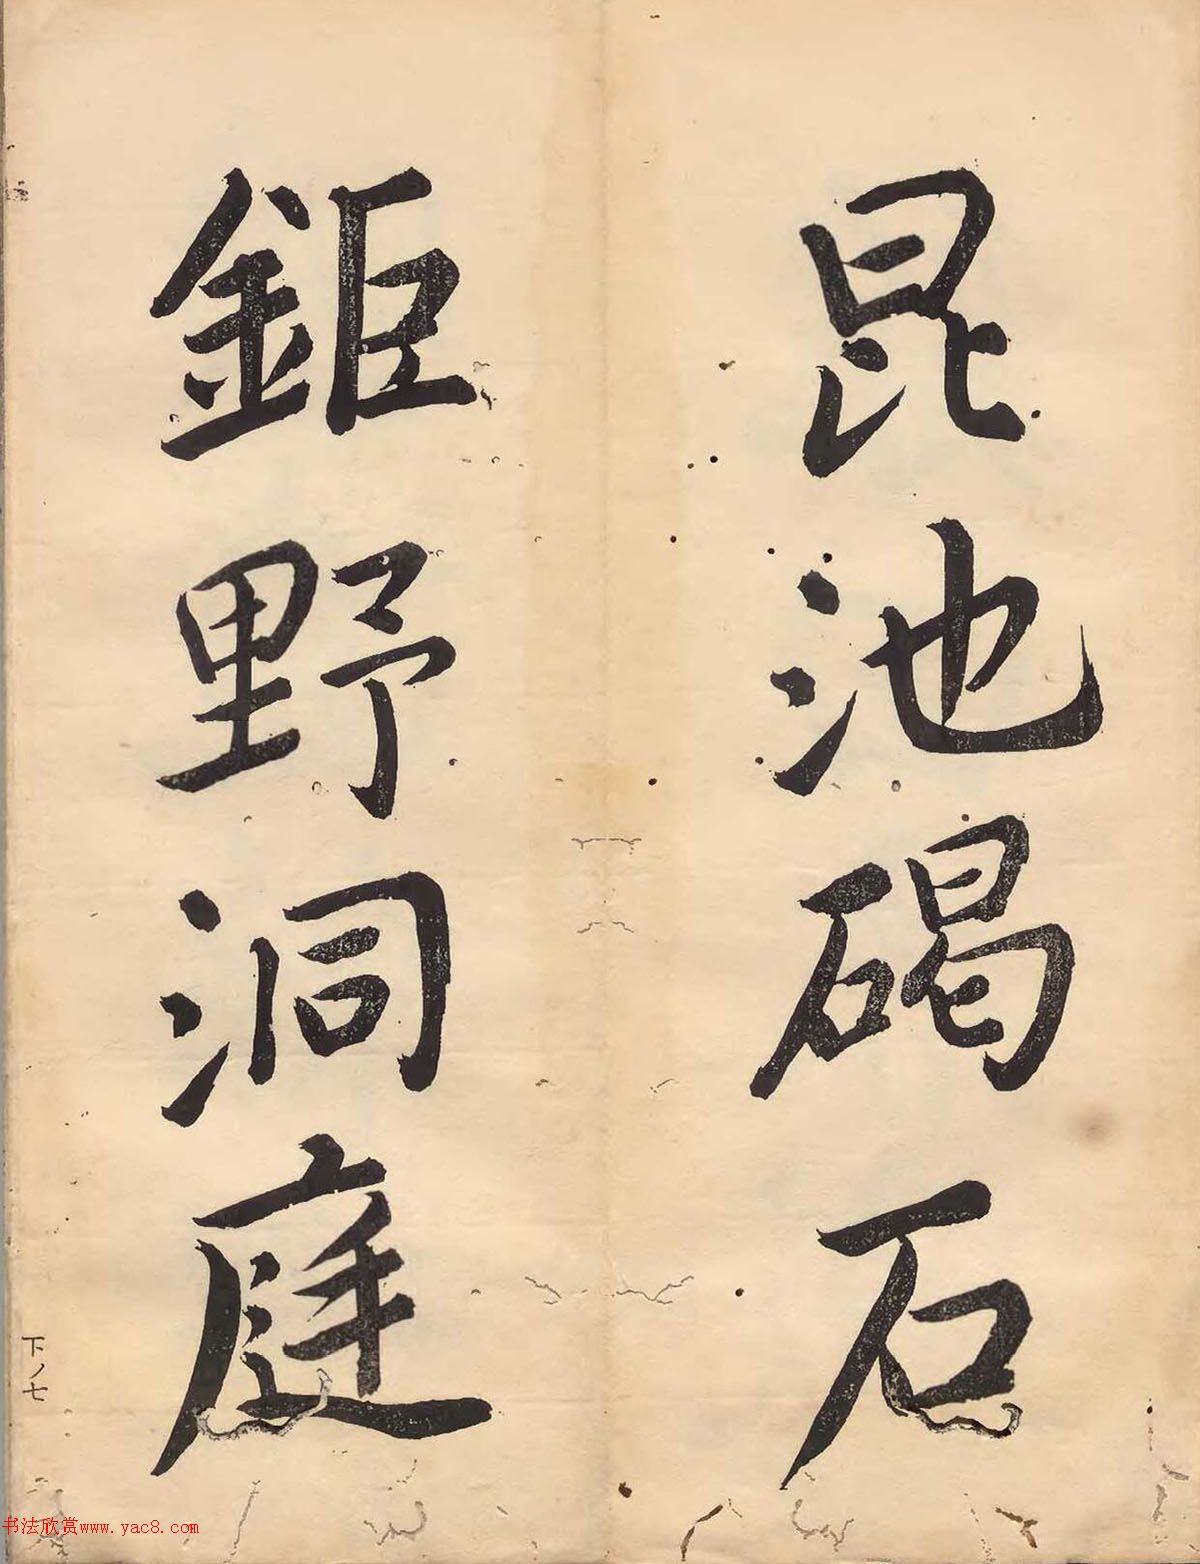 昆池碣石
鉅野洞庭
下ノ七
书法欣赏www.yac8.com